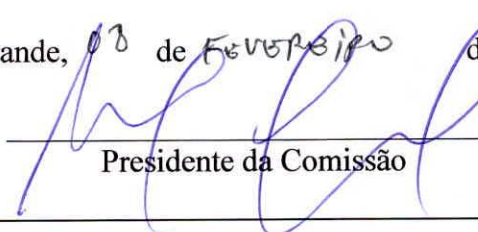 ande, 03 de FEVEREIRO d
Presidente da Comissão